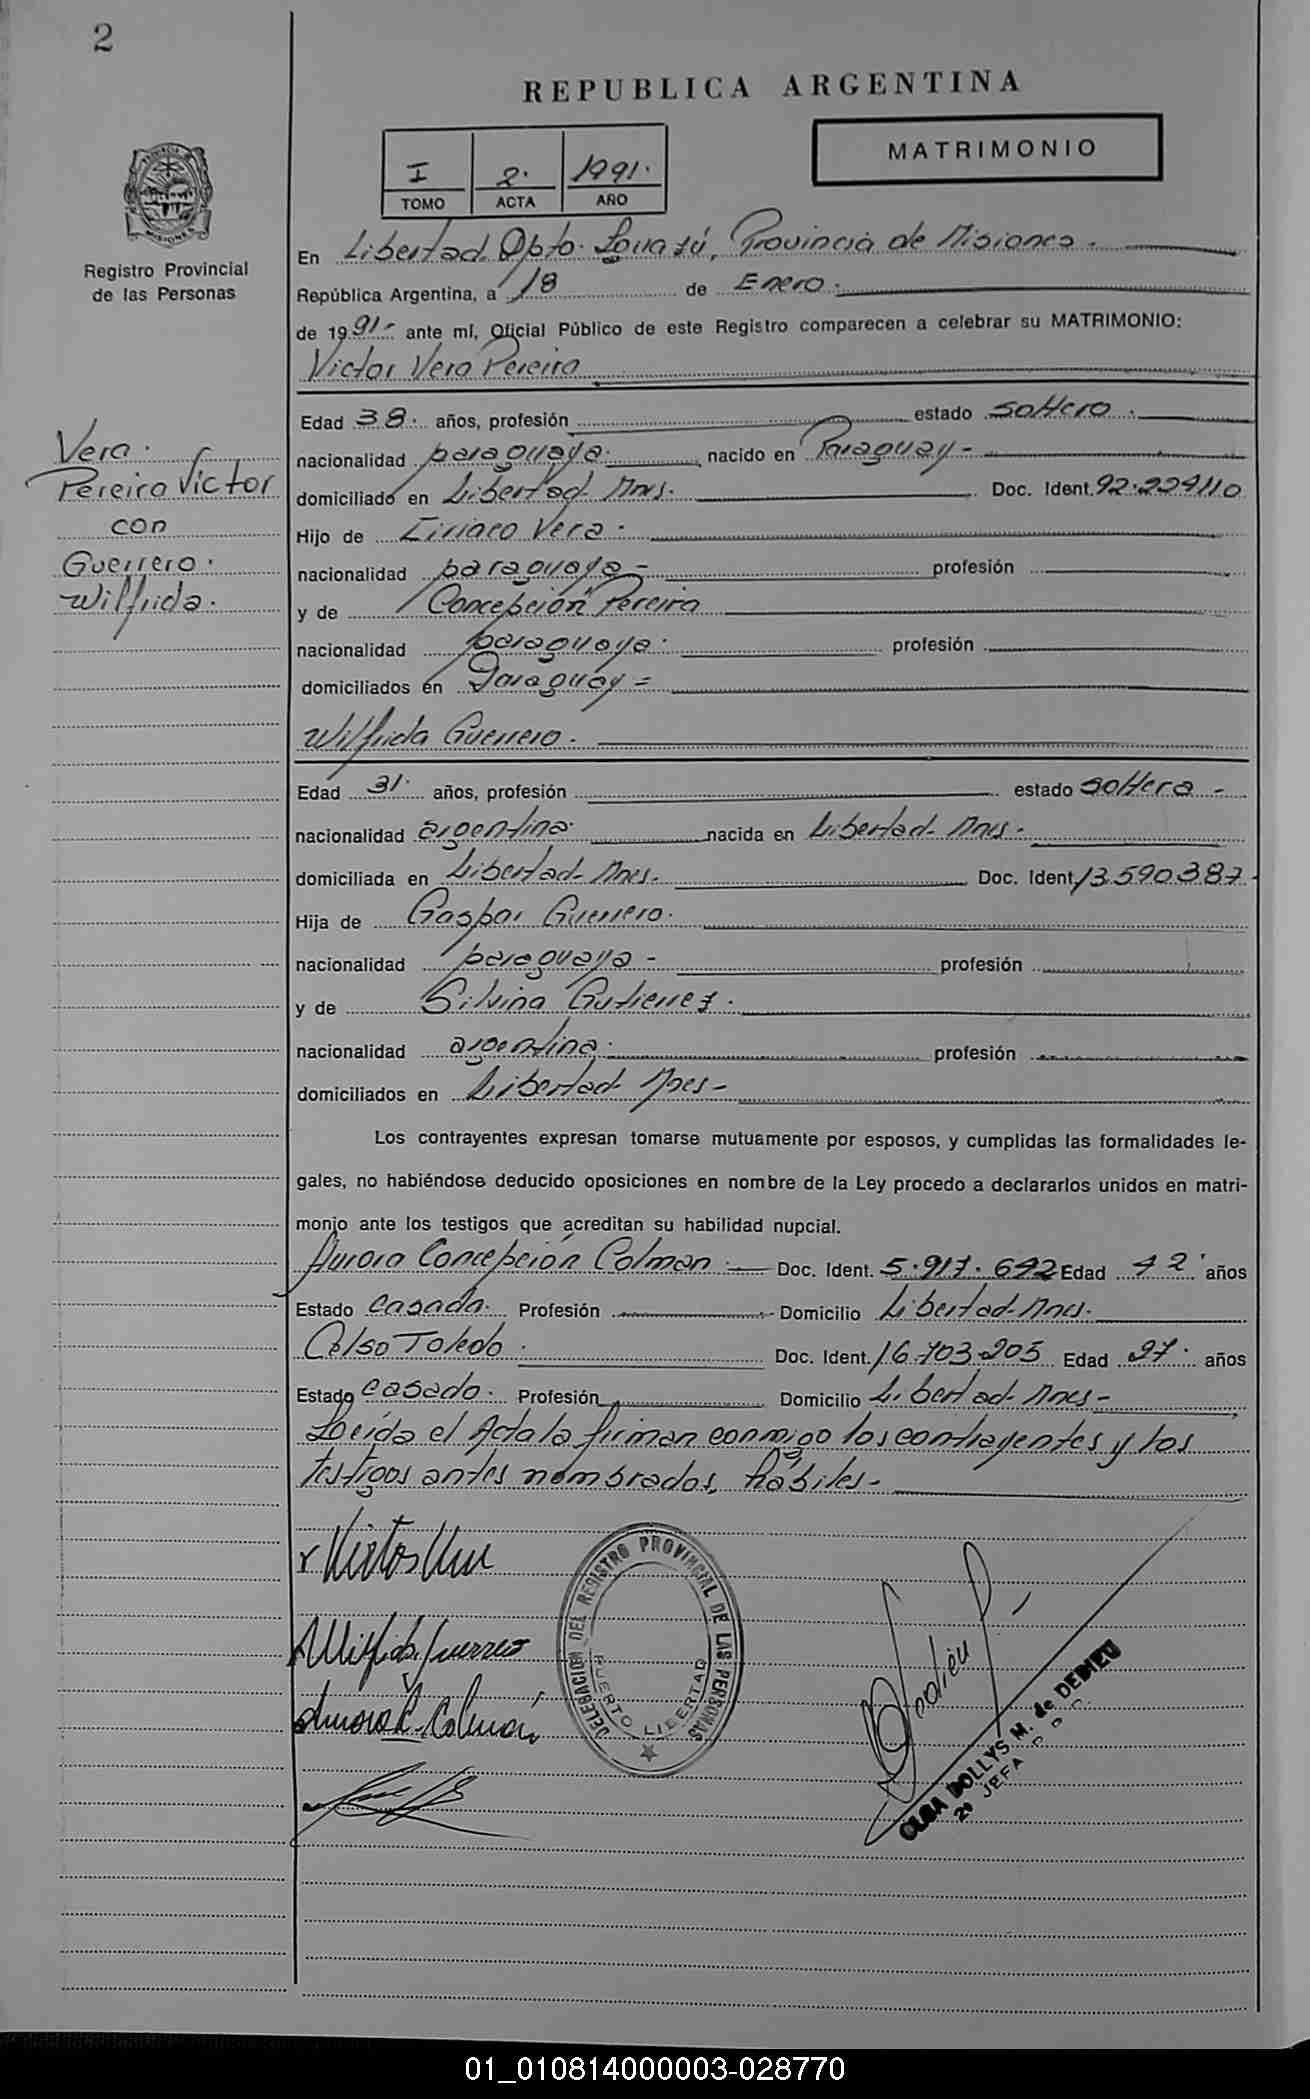 2
REPUBLICA ARGENTINA
MATRIMONIO
I 2. 1991.
TOMO ACTA AÑO
Registro Provincial
de las Personas
En Libertad. Dpto. Iguazú, Provincia de Misiones.
República Argentina, a 18 de Enero.
de 1991- ante mí, Oficial Público de este Registro comparecen a celebrar su MATRIMONIO:
Victor Vera Pereira
Edad 38. años, profesión estado soltero.
Vera.
Pereira Victor
con
Guerrero.
Wilfrida.
nacionalidad paraguaya. nacido en Paraguay-
domiciliado en Libertad Mnes. Doc. Ident. 92.224110
Hijo de Ciriaco Vera.
nacionalidad paraguaya- profesión
y de Concepción Pereira
nacionalidad paraguaya. profesión
domiciliados en Paraguay=
Wilfrida Guerrero.
Edad 31. años, profesión estado soltera-
nacionalidad argentina. nacida en Libertad- Mnes.
domiciliada en Libertad- Mnes. Doc. Ident. 13.590.387.
Hija de Gaspar Guerrero.
nacionalidad paraguaya- profesión
y de Silvina Gutierrez.
nacionalidad argentina. profesión
domiciliados en Libertad Mnes-
Los contrayentes expresan tomarse mutuamente por esposos, y cumplidas las formalidades le-
gales, no habiéndose deducido oposiciones en nombre de la Ley procedo a declararlos unidos en matri-
monio ante los testigos que acreditan su habilidad nupcial.
Aurora Concepción Colman. Doc. Ident. 5.917.642 Edad 42. años
Estado casada. Profesión Domicilio Libertad-Mnes.
Celso Toledo. Doc. Ident. 16.703.205 Edad 27. años
Estado casado. Profesión Domicilio Libertad-Mnes-
Leída el Acta la firman conmigo los contrayentes y los
testigos antes nombrados, hábiles-
Wilfrida Guerrero
Aurora C. Colmán
DELEGACION DEL REGISTRO PROVINCIAL DE LAS PERSONAS
PUERTO LIBERTAD
OLGA DOLLYS M. de DEDIEU
JEFA
01_010814000003-028770